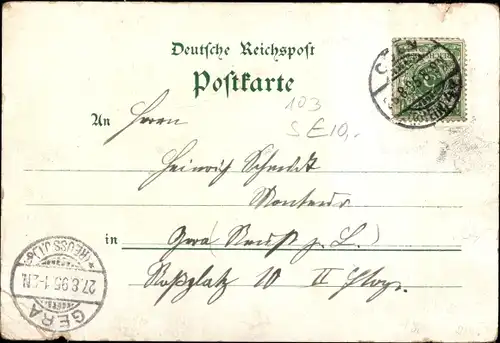 Deutsche Reichspost
Postkarte
103
An Herrn
S E10,-
Heinrich Schmidt
Monteur
in Gera (Reuß j. L.)
Roßplatz 10 II
GERA
27.8.95.1-2N.
* (REUSS J.L.) *